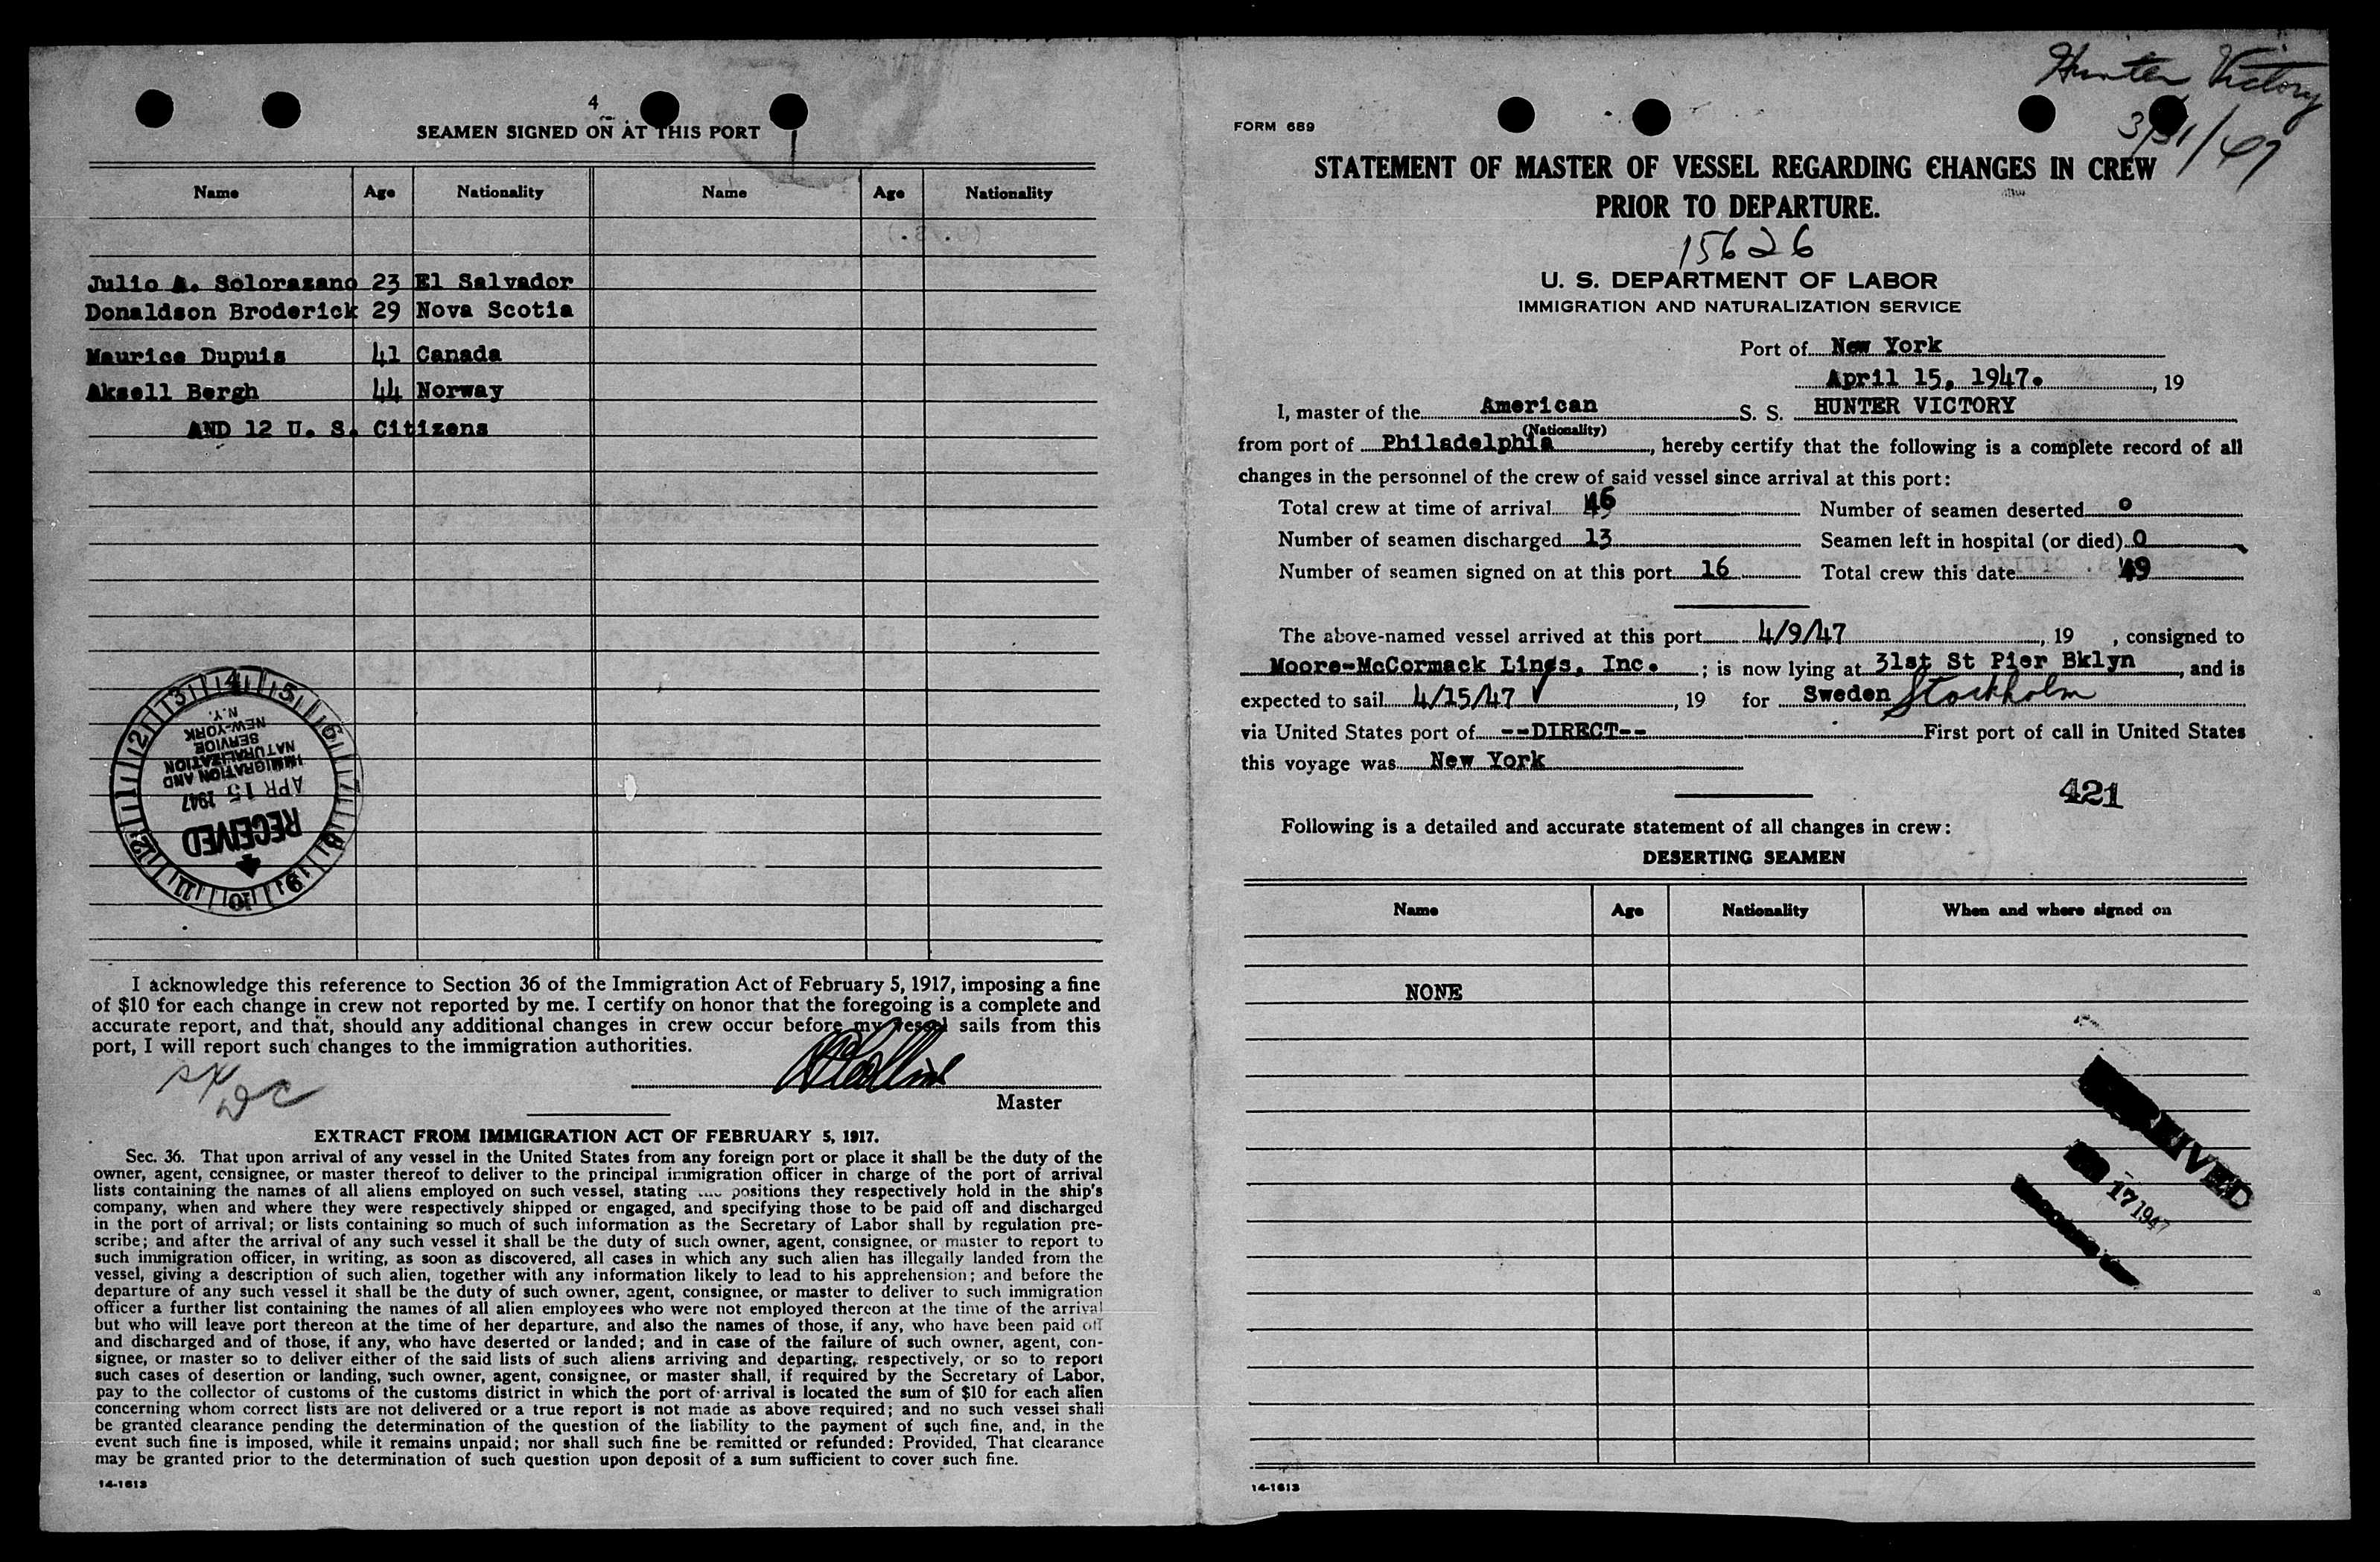 4
SEAMEN SIGNED ON AT THIS PORT
Name Age Nationality Name Age Nationality
Julio A. Solorazano 23 El Salvador
Donaldson Broderick 29 Nova Scotia
Maurice Dupuis 41 Canada
Aksell Bergh 44 Norway
AND 12 U. S. Citizens
3 4 5 6 7 8 9 10 11 12 1 2
RECEIVED
APR 15 1947
IMMIGRATION AND
NATURALIZATION
SERVICE
NEW-YORK
N.Y.
I acknowledge this reference to Section 36 of the Immigration Act of February 5, 1917, imposing a fine
of $10 for each change in crew not reported by me. I certify on honor that the foregoing is a complete and
accurate report, and that, should any additional changes in crew occur before my vessel sails from this
port, I will report such changes to the immigration authorities.
Master
EXTRACT FROM IMMIGRATION ACT OF FEBRUARY 5, 1917.
Sec. 36. That upon arrival of any vessel in the United States from any foreign port or place it shall be the duty of the
owner, agent, consignee, or master thereof to deliver to the principal immigration officer in charge of the port of arrival
lists containing the names of all aliens employed on such vessel, stating the positions they respectively hold in the ship's
company, when and where they were respectively shipped or engaged, and specifying those to be paid off and discharged
in the port of arrival; or lists containing so much of such information as the Secretary of Labor shall by regulation pre-
scribe; and after the arrival of any such vessel it shall be the duty of such owner, agent, consignee, or master to report to
such immigration officer, in writing, as soon as discovered, all cases in which any such alien has illegally landed from the
vessel, giving a description of such alien, together with any information likely to lead to his apprehension; and before the
departure of any such vessel it shall be the duty of such owner, agent, consignee, or master to deliver to such immigration
officer a further list containing the names of all alien employees who were not employed thereon at the time of the arrival
but who will leave port thereon at the time of her departure, and also the names of those, if any, who have been paid off
and discharged and of those, if any, who have deserted or landed; and in case of the failure of such owner, agent, con-
signee, or master so to deliver either of the said lists of such aliens arriving and departing, respectively, or so to report
such cases of desertion or landing, such owner, agent, consignee, or master shall, if required by the Secretary of Labor,
pay to the collector of customs of the customs district in which the port of arrival is located the sum of $10 for each alien
concerning whom correct lists are not delivered or a true report is not made as above required; and no such vessel shall
be granted clearance pending the determination of the question of the liability to the payment of such fine, and, in the
event such fine is imposed, while it remains unpaid; nor shall such fine be remitted or refunded: Provided, That clearance
may be granted prior to the determination of such question upon deposit of a sum sufficient to cover such fine.
14-1613
Hunter Victory
3/31/47
FORM 689
STATEMENT OF MASTER OF VESSEL REGARDING CHANGES IN CREW
PRIOR TO DEPARTURE.
15626
U. S. DEPARTMENT OF LABOR
IMMIGRATION AND NATURALIZATION SERVICE
Port of New York
April 15, 1947. , 19
I, master of the American S. S. HUNTER VICTORY
(Nationality)
from port of Philadelphia, hereby certify that the following is a complete record of all
changes in the personnel of the crew of said vessel since arrival at this port:
Total crew at time of arrival 46 Number of seamen deserted 0
Number of seamen discharged 13 Seamen left in hospital (or died) 0
Number of seamen signed on at this port 16 Total crew this date 49
The above-named vessel arrived at this port 4/9/47, 19 , consigned to
Moore-McCormack Lines, Inc. ; is now lying at 31st St Pier Bklyn, and is
expected to sail 4/15/47, 19 for Sweden Stockholm
via United States port of --DIRECT-- First port of call in United States
this voyage was New York
421
Following is a detailed and accurate statement of all changes in crew:
DESERTING SEAMEN
Name Age Nationality When and where signed on
NONE
RECEIVED
17 1947
14-1613